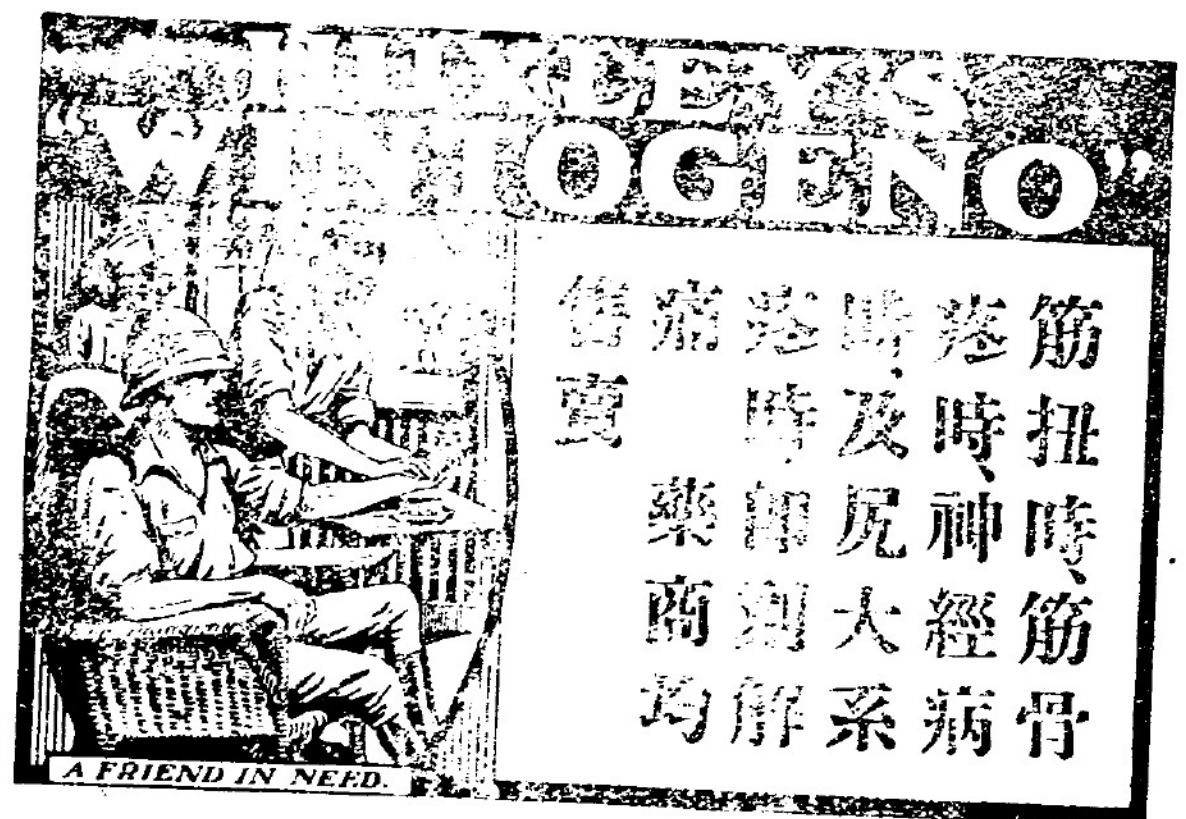 HUXLEY'S
"WINTOGENO"
筋扭時、筋骨
疼時、神經病
時、及尻大系
疼時、卽刻解
痛 藥商均
售賣
A FRIEND IN NEED.